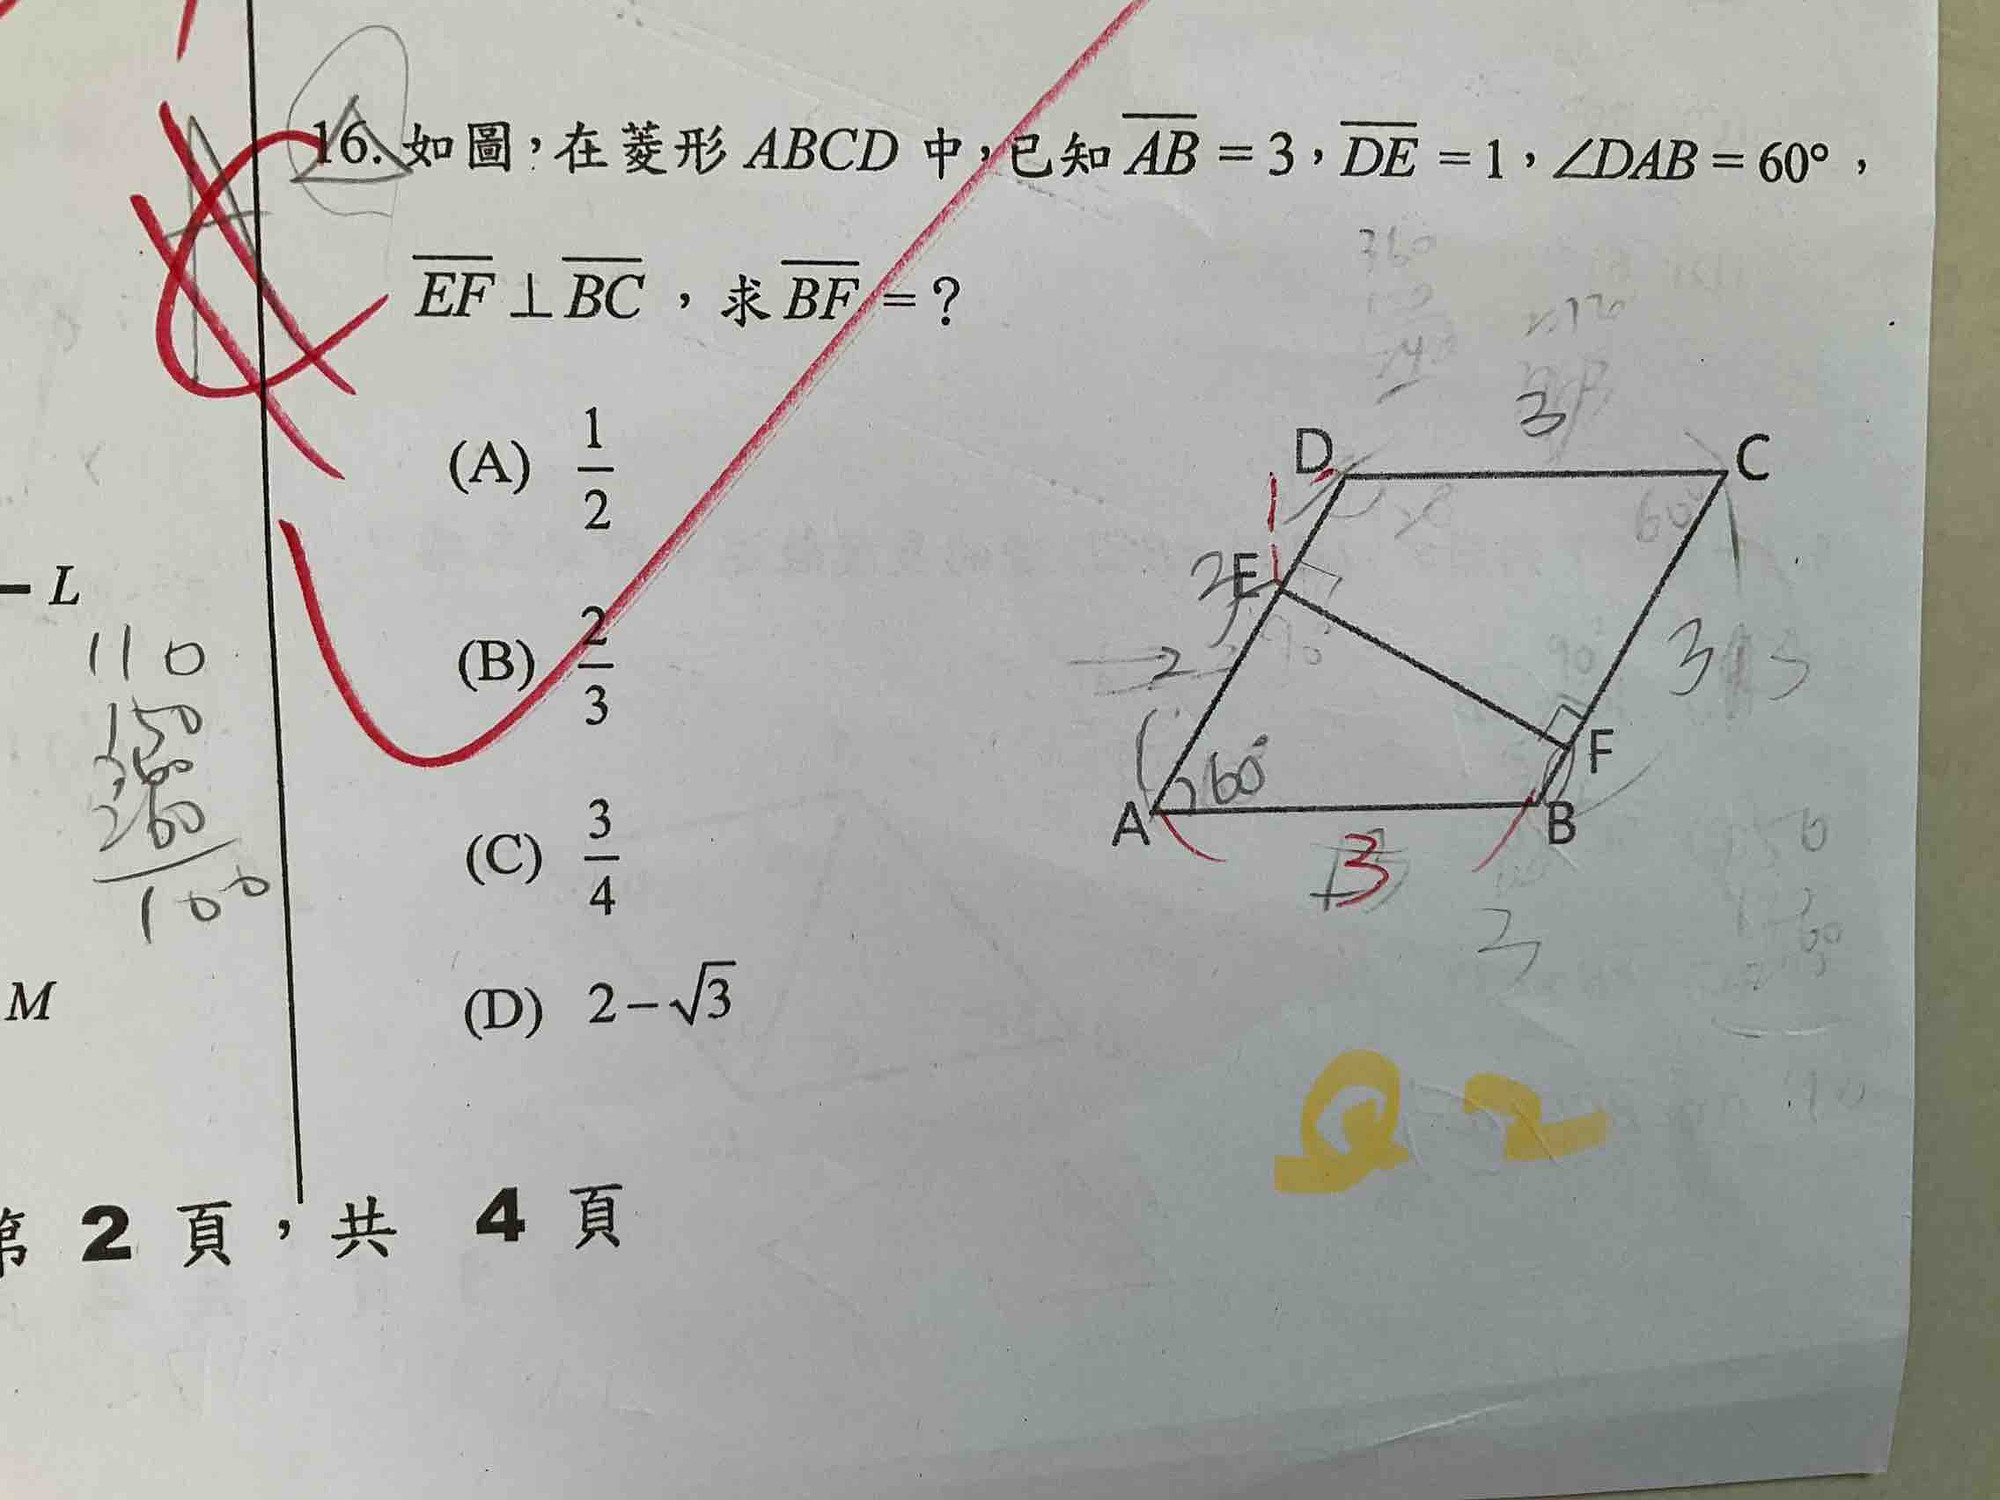 16. 如圖，在菱形 ABCD 中，已知 AB = 3，DE = 1，∠DAB = 60°，
EF ⊥ BC ，求 BF = ？
(A) 1/2
(B) 2/3
(C) 3/4
(D) 2 − √3
D
3
C
60°
E
2
90°
90°
3
F
A
60°
B
3
3
L
110
150
260
100
M
第 2 頁，共 4 頁